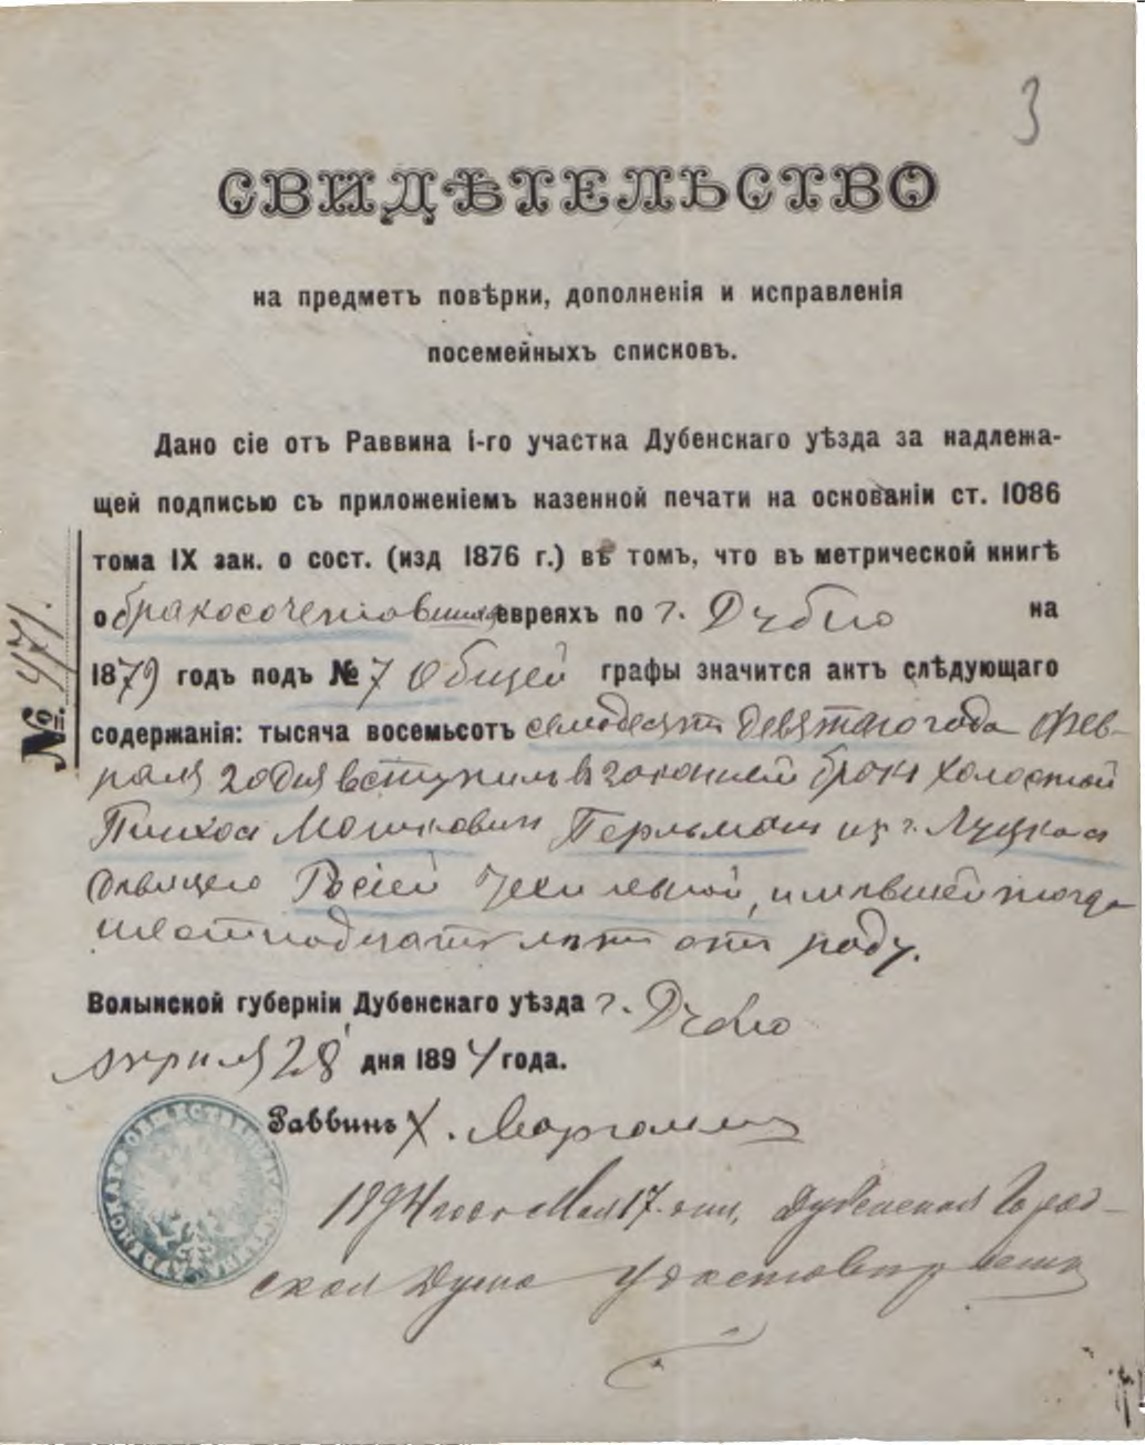 3
СВИДѢТЕЛЬСТВО
на предметъ повѣрки, дополненія и исправленія
посемейныхъ списковъ.
Дано сіе отъ Раввина I-го участка Дубенскаго уѣзда за надлежа-
щей подписью съ приложеніемъ казенной печати на основаніи ст. 1086
тома IX зак. о сост. (изд 1876 г.) въ томъ, что въ метрической книгѣ
о бракосочетавшихся евреяхъ по г. Дубно на
1879 годъ подъ № 7 Общей графы значится актъ слѣдующаго
содержанія: тысяча восемьсотъ семьдесятъ девятаго года Фев-
раля 20 дня вступилъ въ законный бракъ холостой
Пинхос Мошкович Перльман из г. Луцка с
девицею Рейсей, имевшей тогда
шестнадцать лѣтъ отъ роду.
Волынской губерніи Дубенскаго уѣзда г. Дубно
апреля 28 дня 1894 года.
Раввинъ Х. Маргалис
1894 года Мая 17 дня, Дубенская Город-
ская Дума удостоверяет
№ 471.